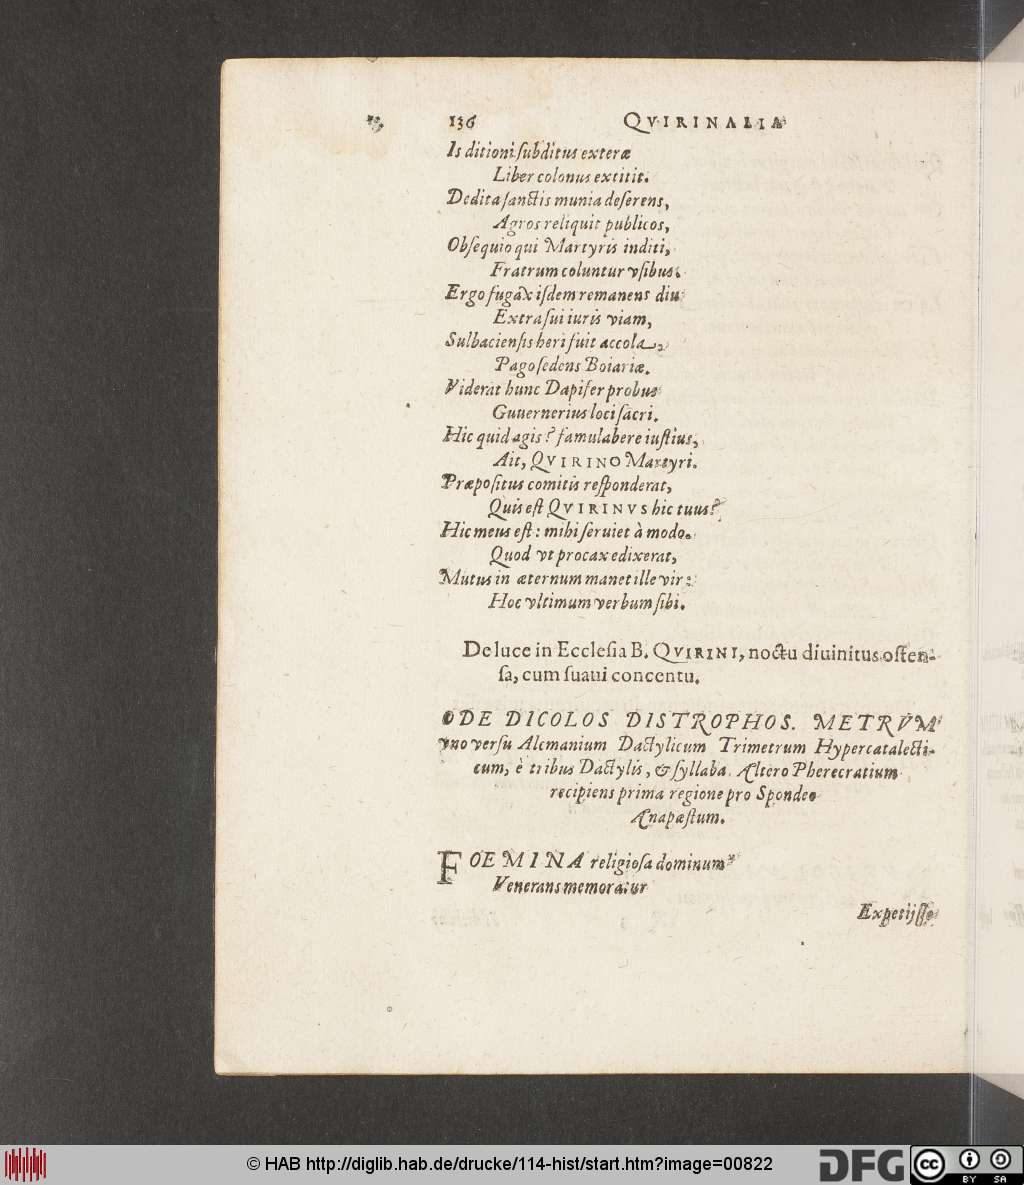 136 QVIRINALIA
Is ditioni ſubditus exteræ
Liber colonus extitit.
Dedita ſanctis munia deſerens,
Agros reliquit publicos,
Obſequio qui Martyris inditi,
Fratrum coluntur vſibus.
Ergo fugax iſdem remanens diu
Extra ſui iuris viam,
Sulbacienſis heri fuit accola,
Pago ſedens Boiariæ.
Viderat hunc Dapifer probus
Guuernerius loci ſacri.
Hic quid agis? famulabere iuſtius,
Ait, QVIRINO Martyri.
Præpoſitus comitis reſponderat,
Quis eſt QVIRINVS hic tuus?
Hic meus eſt: mihi ſeruiet à modo.
Quod vt procax edixerat,
Mutus in æternum manet ille vir:
Hoc vltimum verbum ſibi.
De luce in Eccleſia B. QVIRINI, noctu diuinitus oſten-
ſa, cum ſuaui concentu.
ODE DICOLOS DISTROPHOS. METRVM
vno verſu Alcmanium Dactylicum Trimetrum Hypercatalecti-
cum, è tribus Dactylis, & ſyllaba. Altero Pherecratium
recipiens prima regione pro Spondeo
Anapæſtum.
FOEMINA religioſa dominum
Venerans memoratur
Expetijſſe
© HAB http://diglib.hab.de/drucke/114-hist/start.htm?image=00822
DFG
cc
BY SA